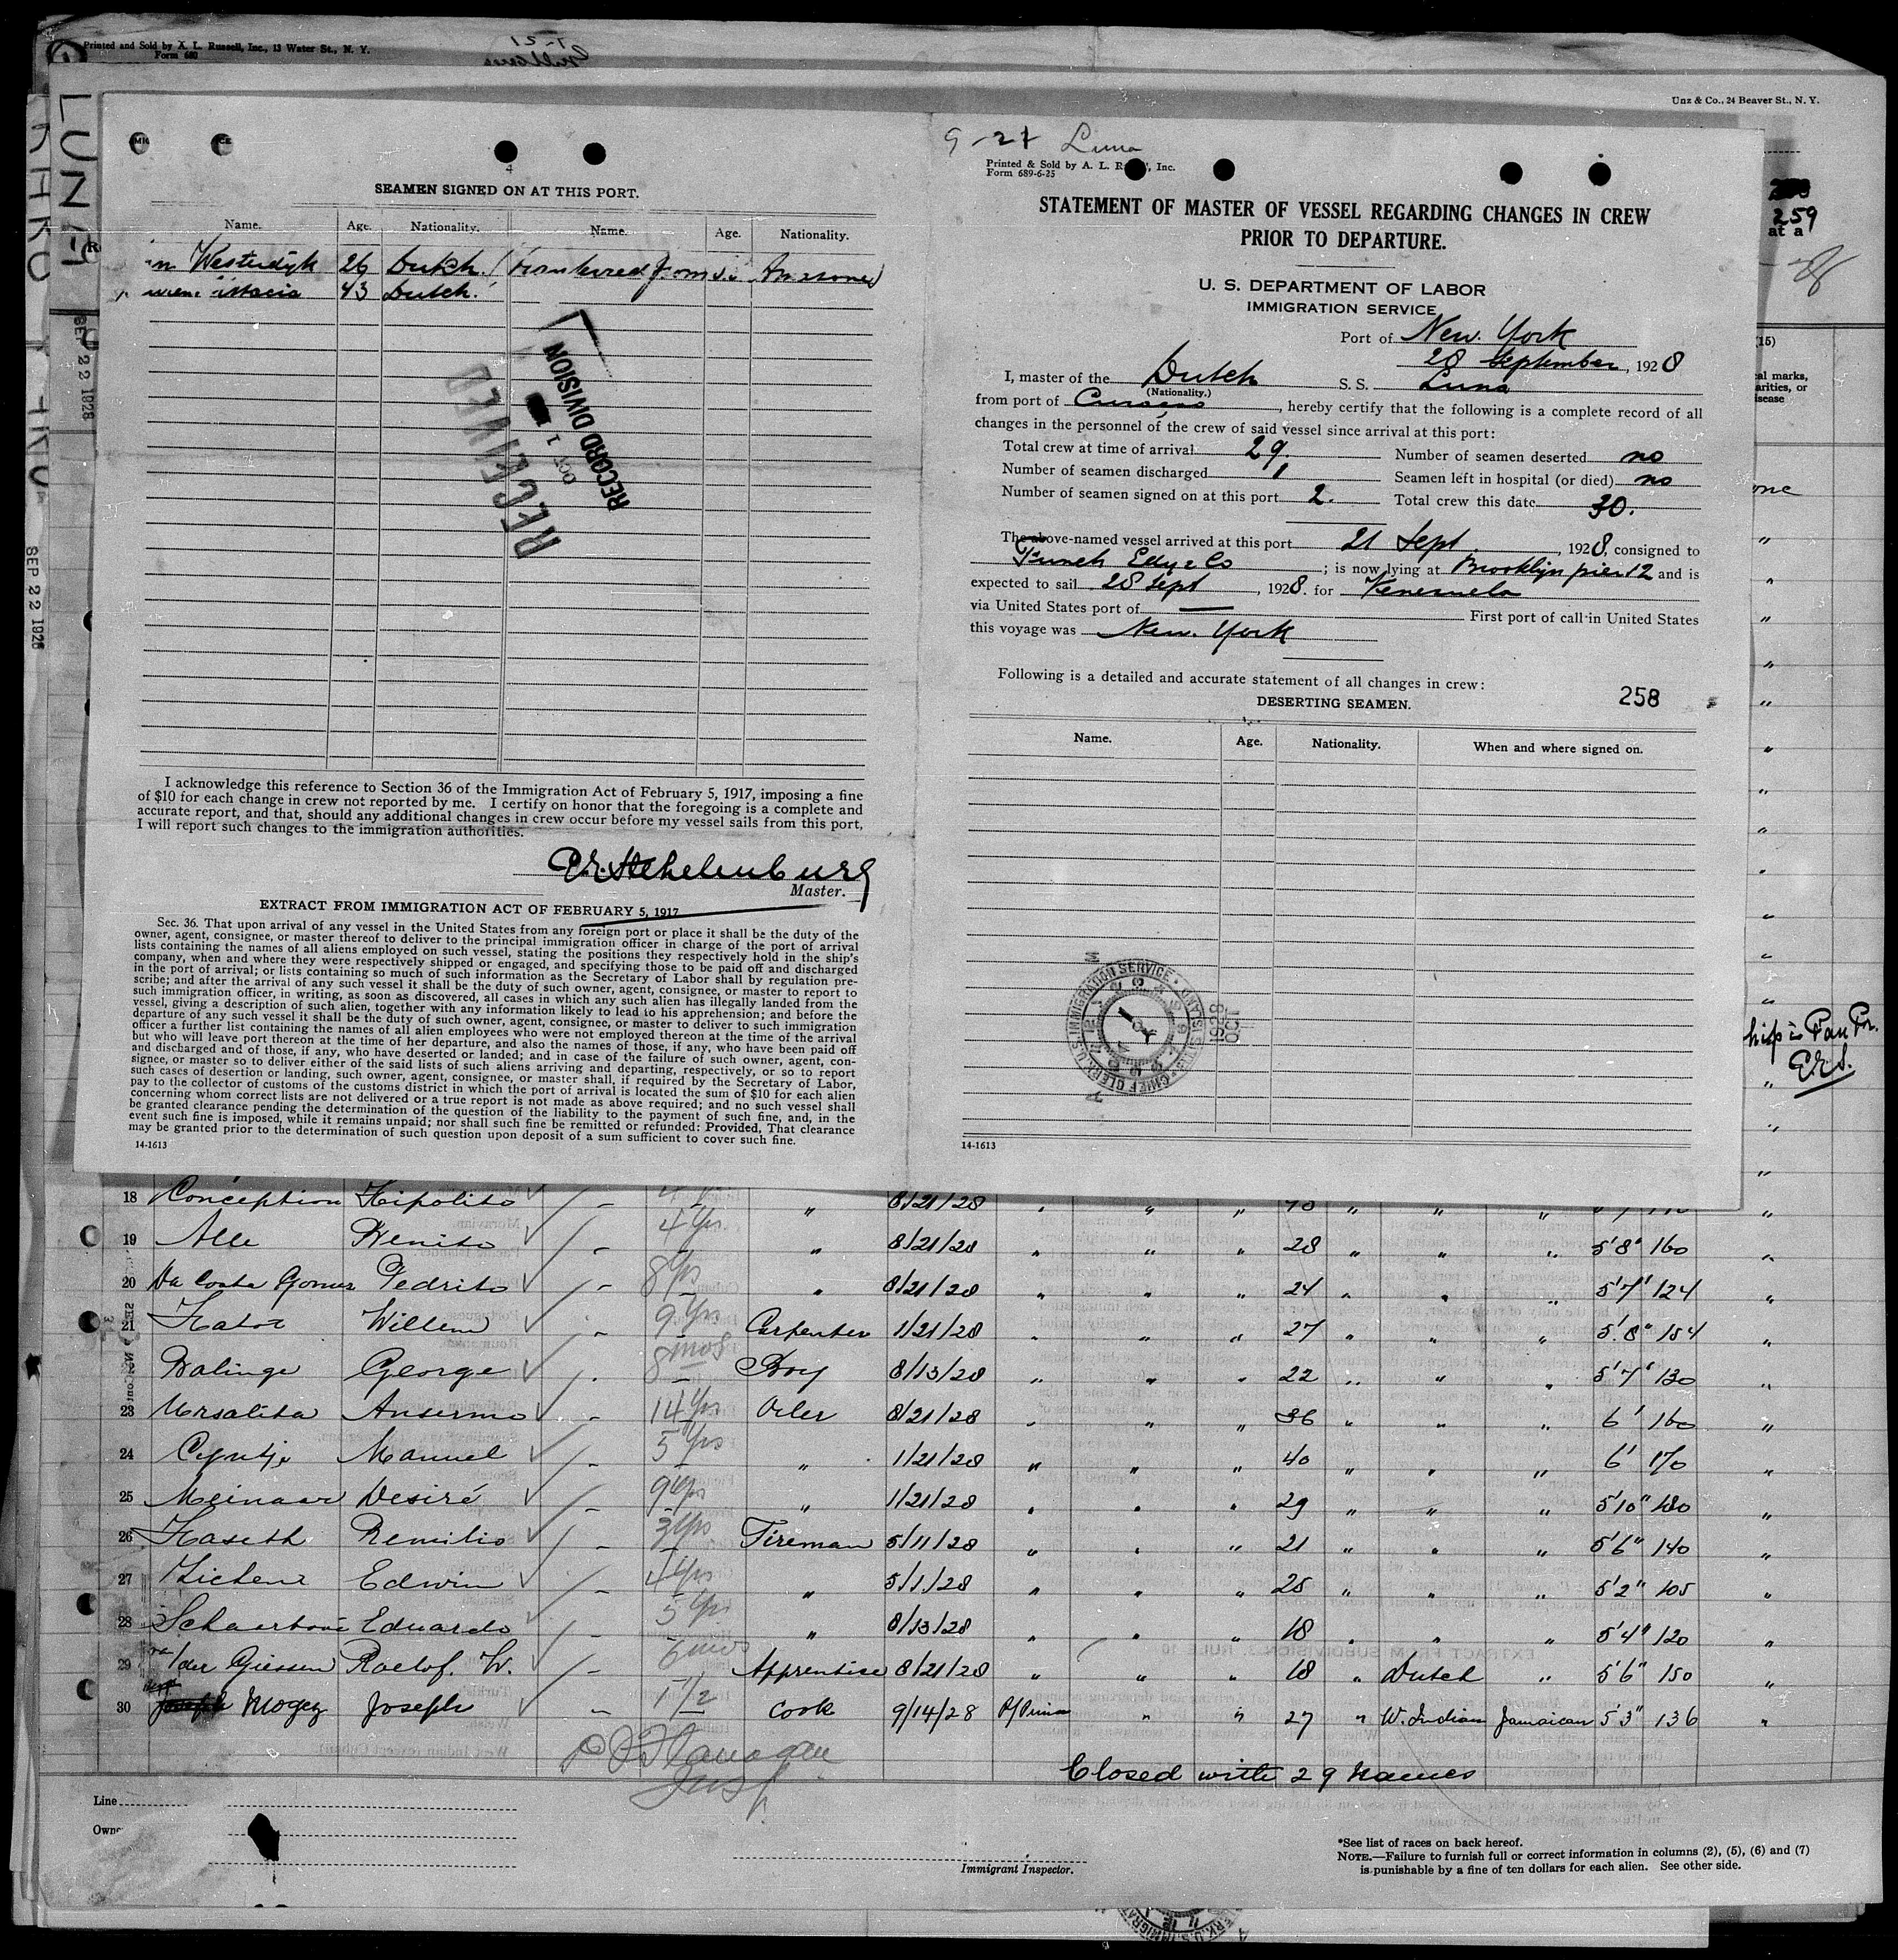 Printed and Sold by A. L. Russell, Inc., 13 Water St., N. Y.
Form 680
Unz & Co., 24 Beaver St., N. Y.
LUNA
SEP 22 1928
SEP 22 1928
259
at a
(15)
SEAMEN SIGNED ON AT THIS PORT.
Name. Age. Nationality. Name. Age. Nationality.
Westerdyk 26 Dutch. (transferred from s.s.
43 Dutch.
RECEIVED
OCT 1
RECORD DIVISION
I acknowledge this reference to Section 36 of the Immigration Act of February 5, 1917, imposing a fine
of $10 for each change in crew not reported by me. I certify on honor that the foregoing is a complete and
accurate report, and that, should any additional changes in crew occur before my vessel sails from this port,
I will report such changes to the immigration authorities.
Master.
EXTRACT FROM IMMIGRATION ACT OF FEBRUARY 5, 1917
Sec. 36. That upon arrival of any vessel in the United States from any foreign port or place it shall be the duty of the
owner, agent, consignee, or master thereof to deliver to the principal immigration officer in charge of the port of arrival
lists containing the names of all aliens employed on such vessel, stating the positions they respectively hold in the ship's
company, when and where they were respectively shipped or engaged, and specifying those to be paid off and discharged
in the port of arrival; or lists containing so much of such information as the Secretary of Labor shall by regulation pre-
scribe; and after the arrival of any such vessel it shall be the duty of such owner, agent, consignee, or master to report to
such immigration officer, in writing, as soon as discovered, all cases in which any such alien has illegally landed from the
vessel, giving a description of such alien, together with any information likely to lead to his apprehension; and before the
departure of any such vessel it shall be the duty of such owner, agent, consignee, or master to deliver to such immigration
officer a further list containing the names of all alien employees who were not employed thereon at the time of the arrival
but who will leave port thereon at the time of her departure, and also the names of those, if any, who have been paid off
and discharged and of those, if any, who have deserted or landed; and in case of the failure of such owner, agent, con-
signee, or master so to deliver either of the said lists of such aliens arriving and departing, respectively, or so to report
such cases of desertion or landing, such owner, agent, consignee, or master shall, if required by the Secretary of Labor,
pay to the collector of customs of the customs district in which the port of arrival is located the sum of $10 for each alien
concerning whom correct lists are not delivered or a true report is not made as above required; and no such vessel shall
be granted clearance pending the determination of the question of the liability to the payment of such fine, and, in the
event such fine is imposed, while it remains unpaid; nor shall such fine be remitted or refunded: Provided, That clearance
may be granted prior to the determination of such question upon deposit of a sum sufficient to cover such fine.
14-1613
9-21 Luna
Printed & Sold by A. L. , Inc.
Form 689-6-25
STATEMENT OF MASTER OF VESSEL REGARDING CHANGES IN CREW
PRIOR TO DEPARTURE.
U. S. DEPARTMENT OF LABOR
IMMIGRATION SERVICE
Port of New. York
28 September, 1928
I, master of the Dutch S. S. Luna
(Nationality.)
from port of Curaçao, hereby certify that the following is a complete record of all
changes in the personnel of the crew of said vessel since arrival at this port:
Total crew at time of arrival 29. Number of seamen deserted no
Number of seamen discharged 1 Seamen left in hospital (or died) no
Number of seamen signed on at this port 2. Total crew this date 30.
The above-named vessel arrived at this port 21 Sept. , 1928, consigned to
Funch Edye & Co ; is now lying at Brooklyn pier 12 and is
expected to sail 28 Sept , 1928. for Venezuela
via United States port of — First port of call in United States
this voyage was New. York
Following is a detailed and accurate statement of all changes in crew:
258
DESERTING SEAMEN.
Name. Age. Nationality. When and where signed on.
U.S. IMMIGRATION SERVICE · ELLIS ISLAND · CHIEF CLERK
1928 OCT
14-1613
18 Conception Hipolito " 8/21/28
19 Alle Benito 4 yrs. " 8/21/28 " " " 28 " " " 5'8" 160 "
20 Da Costa Gomez Pedrito 8 yrs " 8/21/28 " " " 24 " " " 5'7" 124 "
21 Willem 9 yrs Carpenter 1/21/28 " " " 27 " " " 5'8" 154 "
George 8 mos Boy 8/13/28 " " " 22 " " " 5'7" 130 "
23 Ursalita Anselmo 14 yrs Oiler 8/21/28 " " " 36 " " " 6' 160 "
24 Cyntje Manuel 5 yrs " 1/21/28 " " " 40 " " " 6' 170 "
25 Meinaar Desiré 9 yrs " 1/21/28 " " " 29 " " " 5'10" 180 "
26 Haseth Remilio 3 yrs Fireman 5/11/28 " " " 21 " " " 5'6" 140 "
27 Edwin 4 yrs " 5/1/28 " " " 25 " " " 5'2" 105 "
28 Eduardo 5 yrs " 8/13/28 " " " 18 " " " 5'4" 120 "
29 v/der Giessen Roelof. W. 6 mos Apprentice 8/21/28 " " " 18 " Dutch " 5'6" 150 "
30 Joseph 1 1/2 cook 9/14/28 " " 27 " W. Indian Jamaican 5'3" 136 "
Closed with 29 Names
Line
Immigrant Inspector.
*See list of races on back hereof.
NOTE.—Failure to furnish full or correct information in columns (2), (5), (6) and (7)
is punishable by a fine of ten dollars for each alien. See other side.